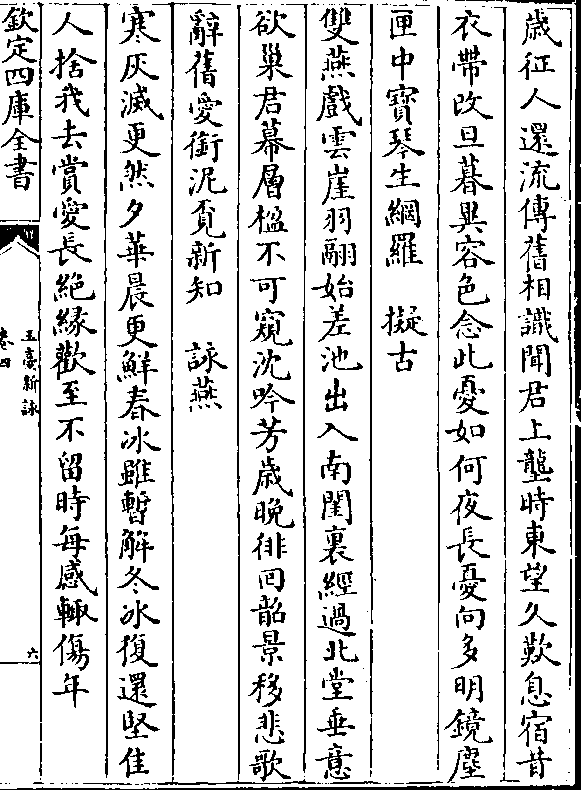 歳征人還流傳舊相識聞君上壟時東望久歎息宿昔
衣帶改旦暮異容色念此憂如何夜長憂向多明鏡塵
匣中寶琴生網羅　擬古
雙燕戲雲崖羽翮始差池出入南閨裏經過北堂垂意
欲巢君幕層楹不可窺沈吟芳歳晚徘徊韶景移悲歌
辭舊愛銜泥覓新知　詠燕
寒灰滅更然夕華晨更鮮春冰雖暫解冬冰復還堅佳
人捨我去賞愛長絶緣歡至不留時每感輙傷年
欽定四庫全書
玉臺新詠
卷四
六